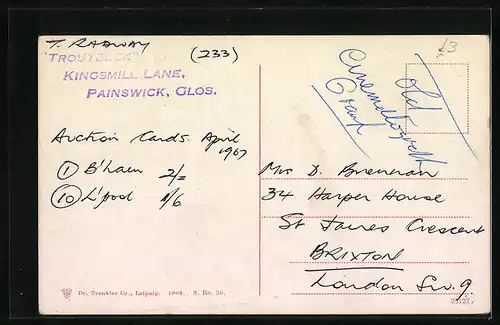 T. RADWAY
(233)
"TROUTBECK"
KINGSMILL LANE,
PAINSWICK, GLOS.
Auction Cards. April
1967
① B'ham 2/=
⑩ L'pool 1/6
£3
Old
Cinematograph
Mrs D. Brennan
34 Harper House
St James Crescent
BRIXTON
London S.W.9.
Dr. Trenkler Co., Leipzig. 1904. S. Ro. 30.